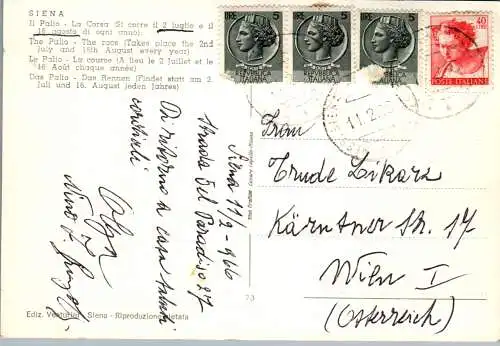 SIENA
Il Palio - La Corsa (Si corre il 2 luglio e il
16 agosto di ogni anno):
The Palio - The race (Takes place the 2nd
july and 16th August every year)
Le Palio - La course (A lieu le 2 Juillet et le
16 Août chaque année)
Das Palio - Das Rennen (Findet statt am 2.
Juli und 16. August jeden Jahres)
LIRE 5
LIRE 5
LIRE 5
REPUBBLICA
ITALIANA
REPUBBLICA
ITALIANA
ITALIANA
40
LIRE
POSTE ITALIANE
11.2
Siena 11/2-966
Strada del Paradiso 27
Di ritorno a casa saluti
cordiali
Olga
Nino
Frau
Trude Likarz
Kärntner Str. 17
Wien I
(Österreich)
73
Ediz. Venturini - Siena - Riproduzione vietata